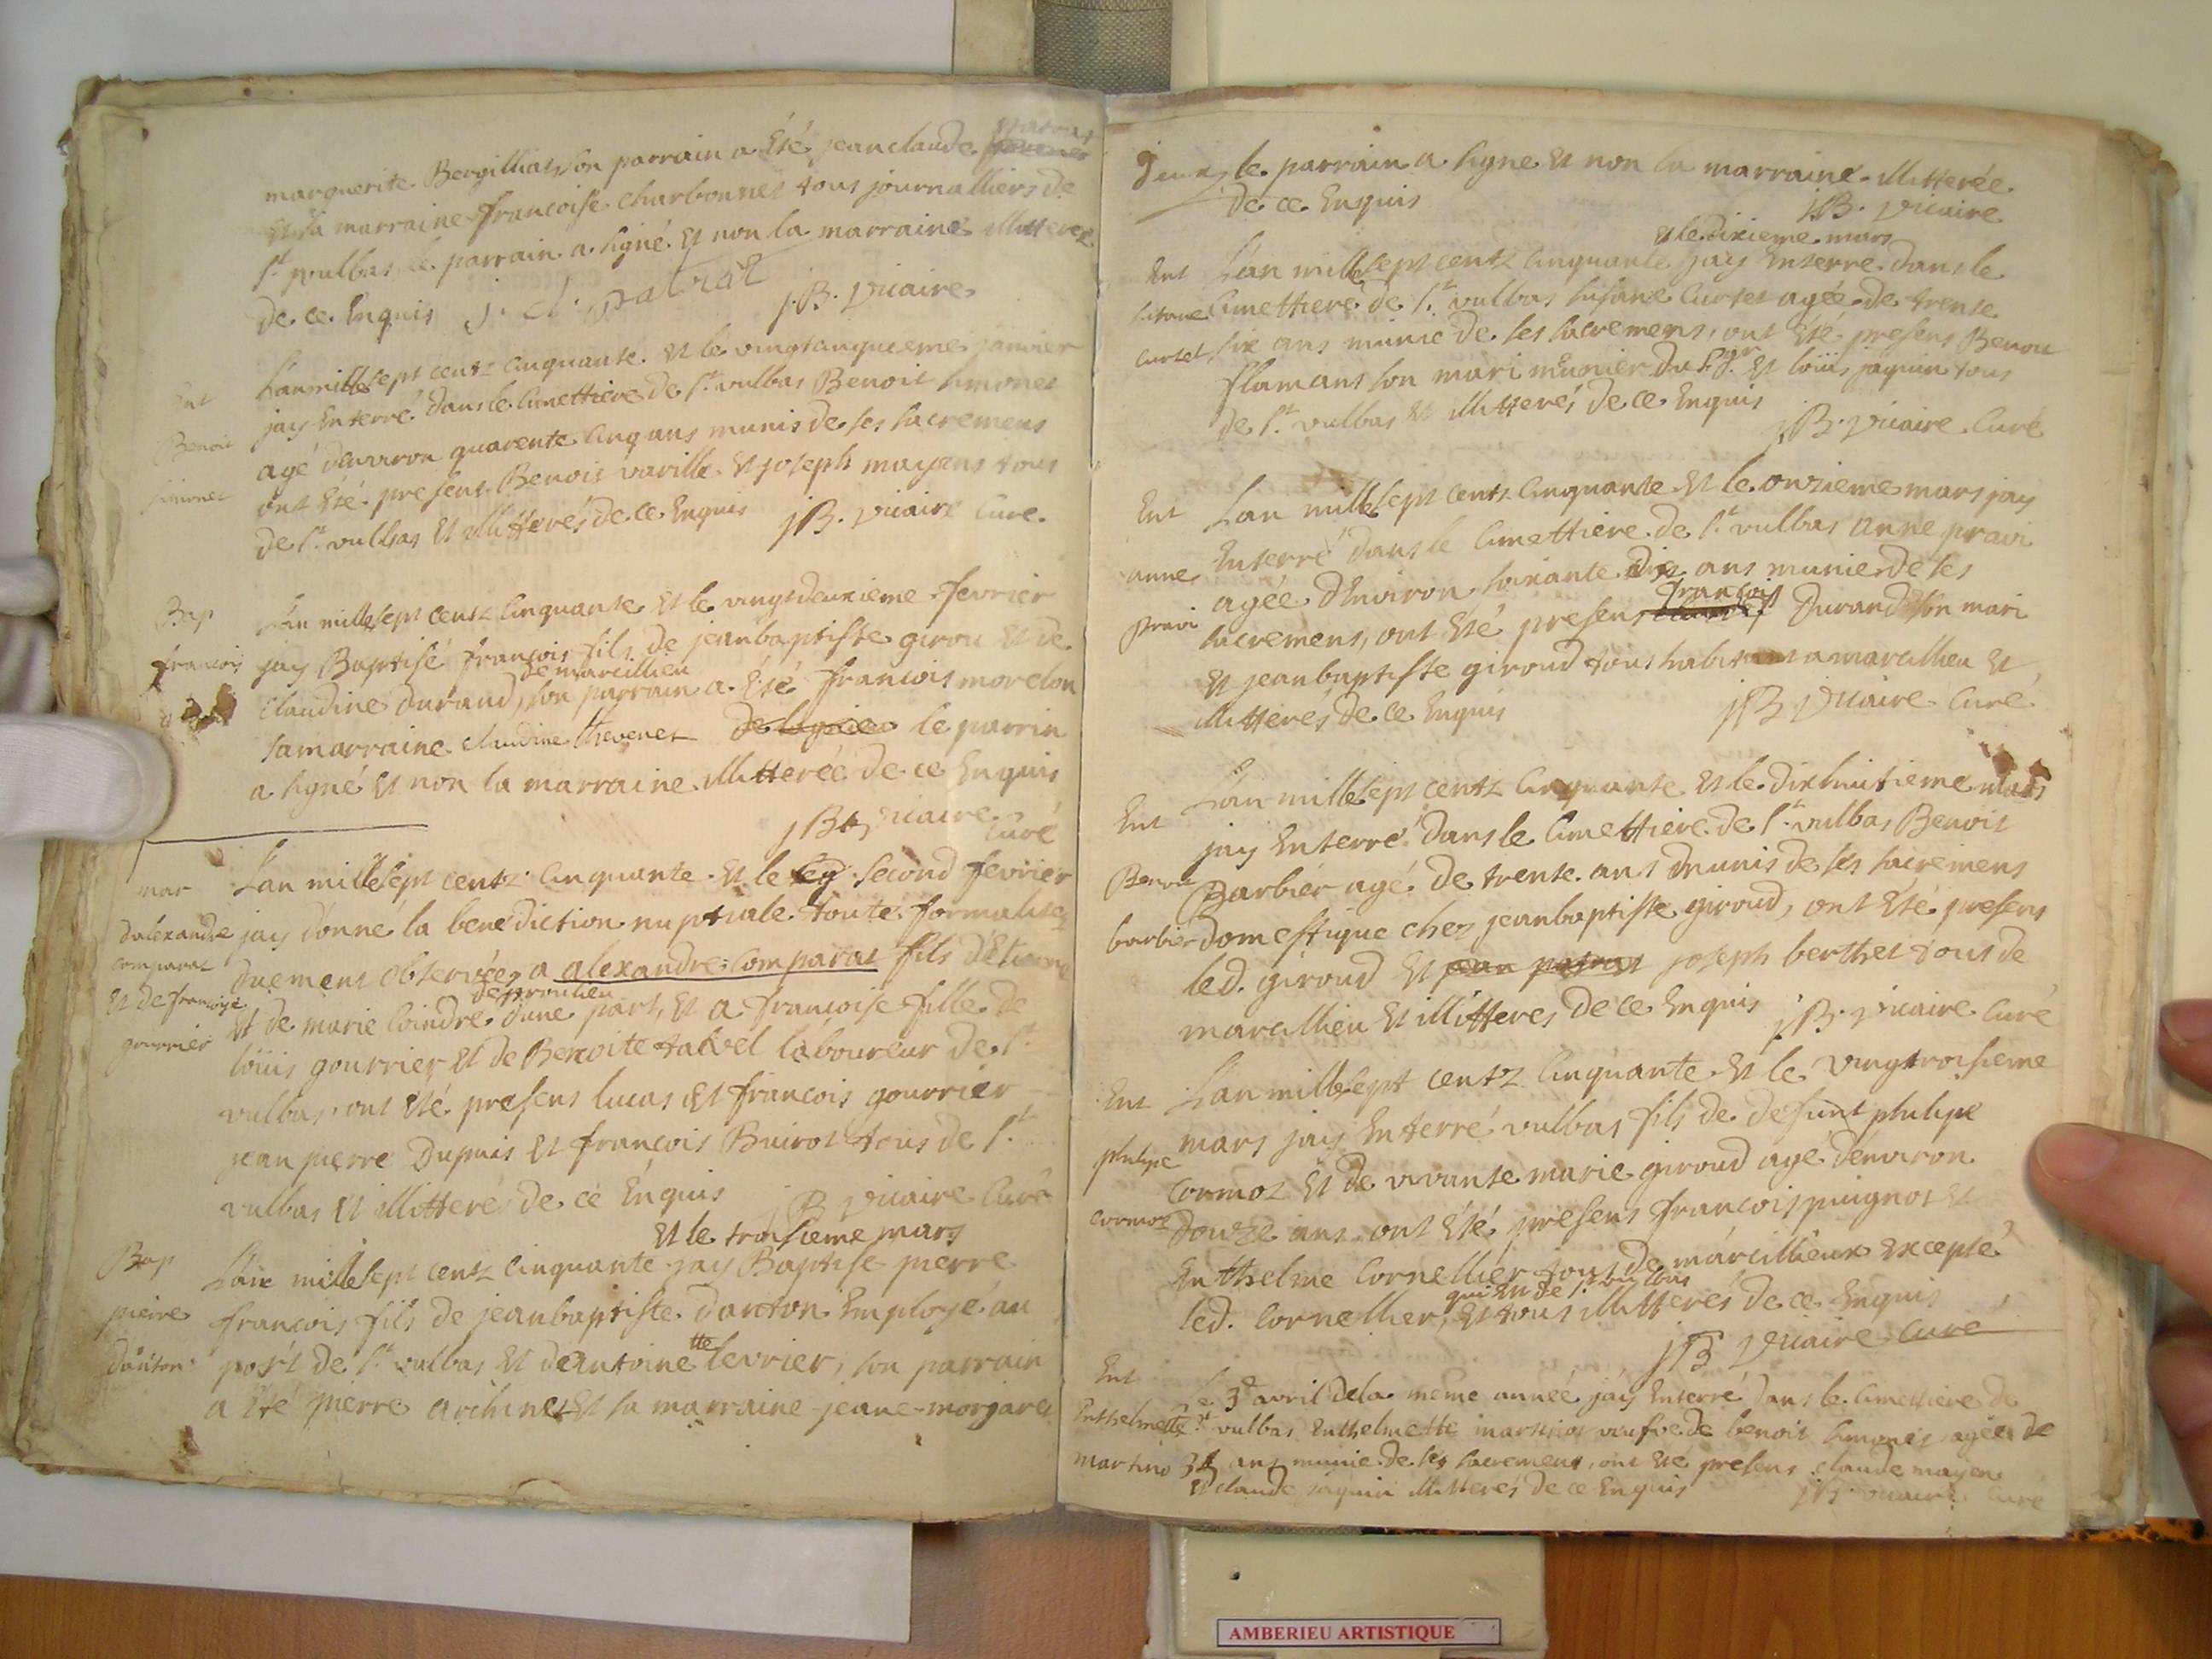 patras
marguerite Bergilliat, son parrain a Eté jeanclaude
Et sa marraine francoise charbonnet tous journalliers de
St vulbas, le parrain a signé Et non la marraine illitterée
de ce Enquis J. Cl. patrat jB. vicaire
Ent
Benoit
simonet
L'an mille sept centz cinquante Et le vingtcinquieme janvier
jay Enterré dans le cimettiere de St vulbas Benoit simonet
agé d'environ quarente cinq ans munis de ses sacremens
ont Eté presens Benois vaville Et joseph mayens tous
de St vulbas Et illitterés de ce Enquis jB. vicaire Curé
Bap
francois
L'an mille sept centz cinquante Et le vingtdeuxieme fevrier
jay Baptisé francois fils de jeanbaptiste girou Et de
de marcillieu
claudine durand, son parrain a Eté francois morelon
sa marraine claudine thevenet le parrin
a signé Et non la marraine illitterée de ce Enquis
jB vicaire
Curé
mar
d'alexandre
comparat
Et de francoise
gourrier
L'an mille sept centz cinquante Et le second fevrier
jay donné la benediction nuptiale toute formalité
duement observée, a alexandre comparat fils d'Etienne
de proulieu
Et de marie Coindre d'une part, Et a francoise fille de
louis gourrier Et de Benoite talvel laboureur de St
vulbas, ont Eté presens lucas Et francois gourrier
jean pierre Dupuis Et francois Buirot tous de St
vulbas Et illitterés de ce Enquis jB vicaire Curé
Et le troisieme mars
Bap
pierre
danton
L'an mille sept centz cinquante jay Baptise pierre
francois fils de jeanbaptiste danton Employé au
port de St vulbas Et de Antoinette levrier, son parrain
a Eté pierre archinet Et sa marraine jeane morgaret
deux, le parrain a signe Et non la marraine illitterée
de ce Enquis
jB. vicaire
Et le dixieme mars
Ent
susane
curtet
L'an mille sept centz cinquante jay Enterre dans le
cimettiere de St vulbas susane Curtet agée de trente
six ans munie de ses sacremens, ont Eté presens Benoit
flamans son mari munier du sgr Et louis jaquin tous
de St vulbas Et illitterés de ce Enquis
jB. vicaire Curé
Ent
anne
pravi
L'an mille sept centz cinquante Et le onzieme mars jay
Enterré dans le cimettiere de St vulbas anne pravi
agée d'Environ soixante dix ans munie de ses
francois
sacremens, ont Eté presens Durand son mari
Et jeanbaptiste giroud tous habitant a marcillieu Et
illitterés de ce Enquis jB vicaire Curé
Ent
Benoit
barbier
L'an mille sept centz cinquante Et le dixhuitieme mars
jay Enterré dans le cimettiere de St vulbas Benoit
Barbier agé de trente ans munis de ses sacremens
domestique chez jeanbaptiste giroud, ont Eté presens
led. giroud Et jean patrat joseph berthet tous de
marcillieu Et illitteres de ce Enquis jB. vicaire Curé
Ent
philipe
cormoz
L'an mille sept centz cinquante Et le vingtroisieme
mars jay Enterré vulbas fils de defunt philipe
cormoz Et de vivante marie giroud agé d'environ
douze ans, ont Eté presens francois puignot Et
Enthelme Cornellier tous de marcillieux excepté
qui En de St vulbas
led. Cornellier, Et tous illitterés de ce Enquis
jB vicaire Curé
Ent
Enthelmette
martino
Le 3e avril de la meme année jay Enterré dans le cimettiere de
St vulbas Enthelmette martinot veufve de benoit simonet agée de
ans munie de ses sacremens, ont Eté presens claude mayen
Et claude jaquin illitterés de ce Enquis jB vicaire Curé
AMBERIEU ARTISTIQUE